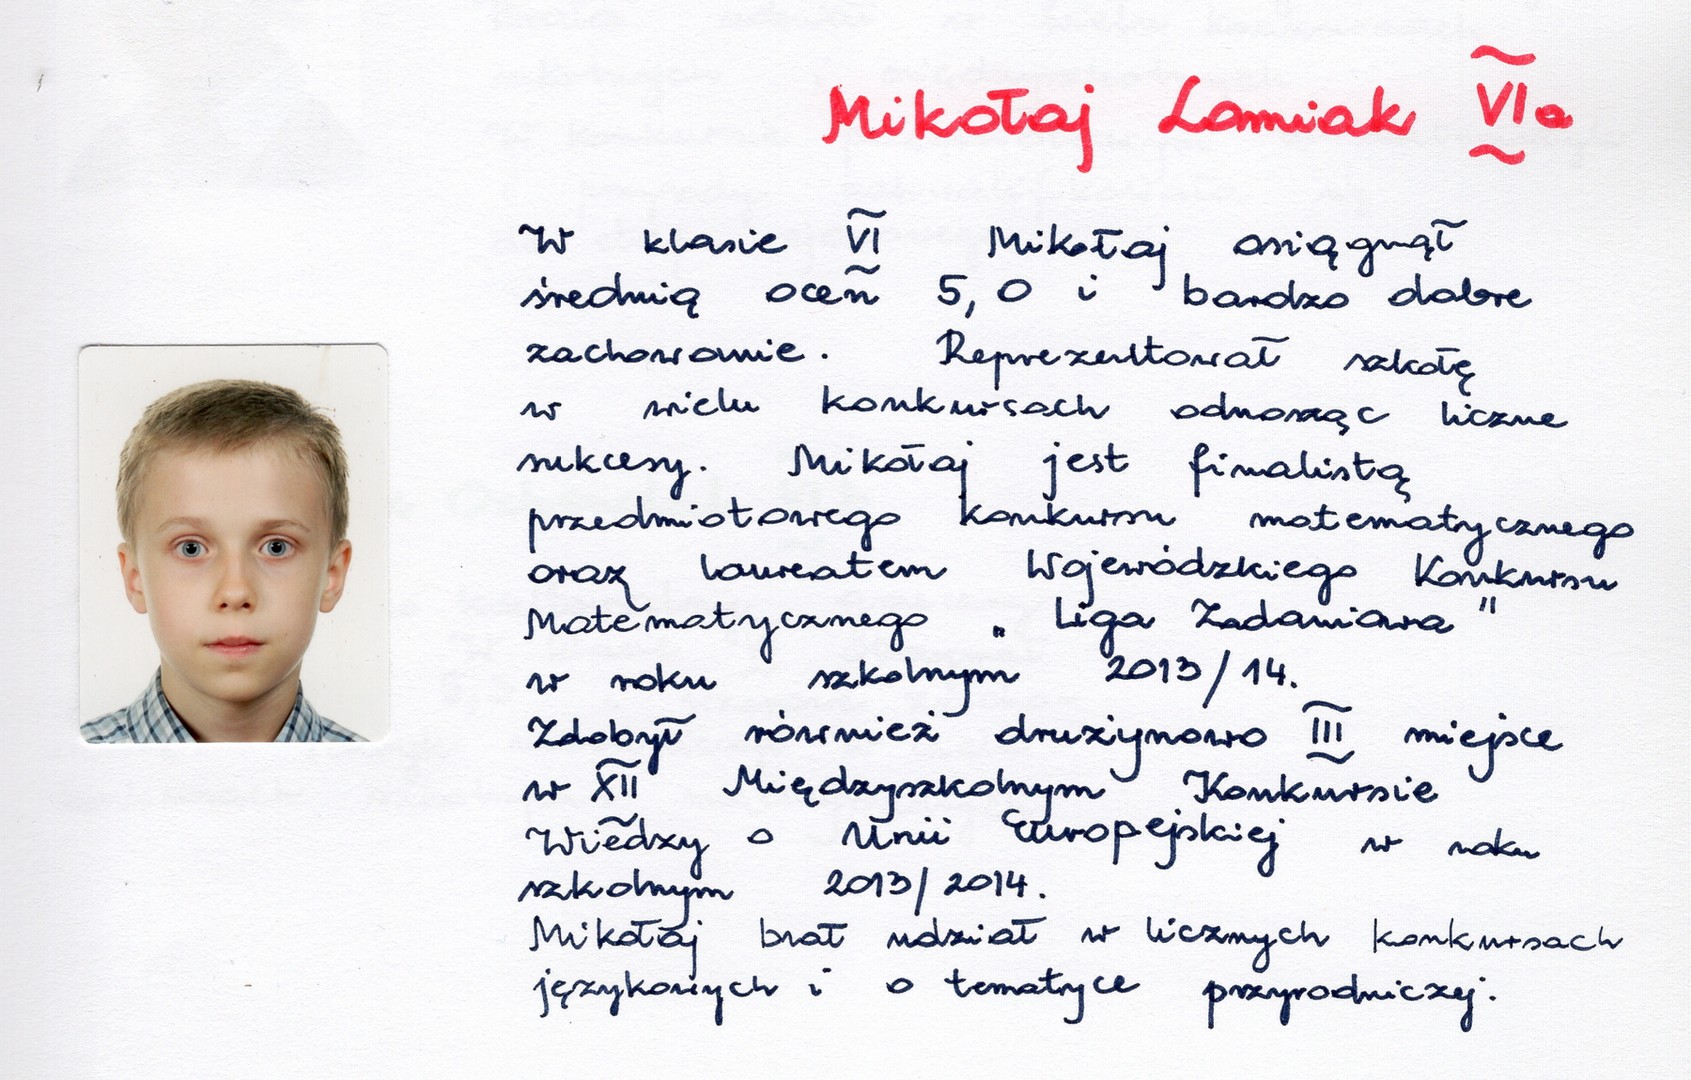 Mikołaj Lamiak VIa
W klasie VI Mikołaj osiągnął
średnią ocen 5,0 i bardzo dobre
zachowanie. Reprezentował szkołę
w wielu konkursach odnosząc liczne
sukcesy. Mikołaj jest finalistą
przedmiotowego konkursu matematycznego
oraz laureatem Wojewódzkiego Konkursu
Matematycznego „Liga Zadaniowa"
w roku szkolnym 2013/14.
Zdobył również drużynowo III miejsce
w XII Międzyszkolnym Konkursie
Wiedzy o Unii Europejskiej w roku
szkolnym 2013/2014.
Mikołaj brał udział w licznych konkursach
językowych i o tematyce przyrodniczej.